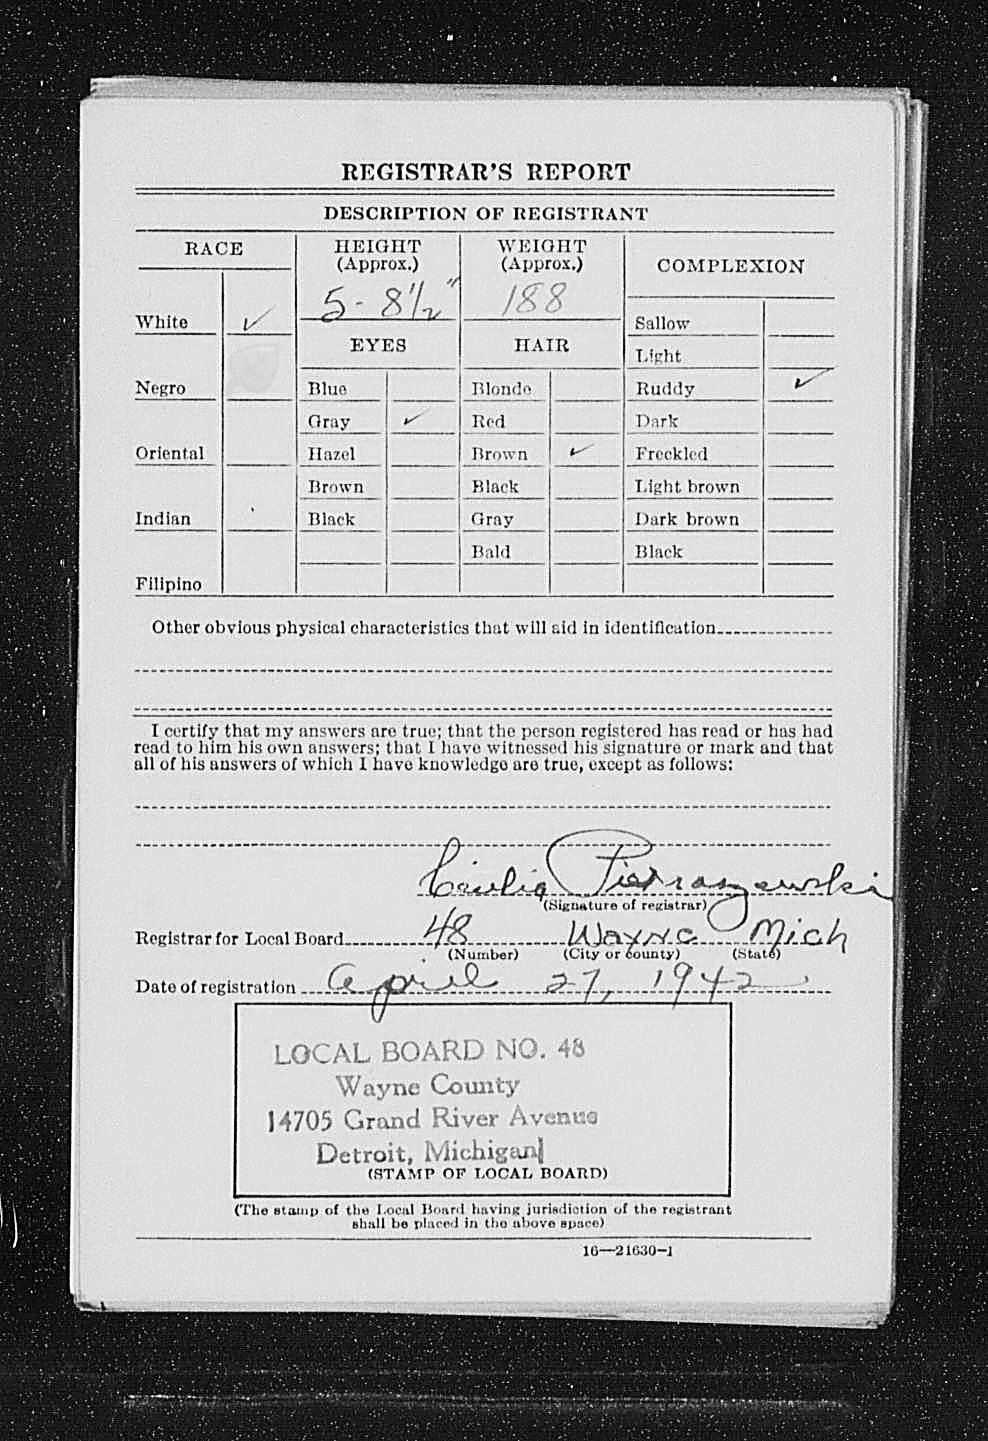 REGISTRAR'S REPORT
DESCRIPTION OF REGISTRANT
RACE
HEIGHT
(Approx.)
WEIGHT
(Approx.)
COMPLEXION
5-8½"
188
White ✓
Sallow
EYES
HAIR
Light
Negro
Blue
Blonde
Ruddy ✓
Gray ✓
Red
Dark
Oriental
Hazel
Brown ✓
Freckled
Brown
Black
Light brown
Indian
Black
Gray
Dark brown
Bald
Black
Filipino
Other obvious physical characteristics that will aid in identification
I certify that my answers are true; that the person registered has read or has had
read to him his own answers; that I have witnessed his signature or mark and that
all of his answers of which I have knowledge are true, except as follows:
Pietraszewski
(Signature of registrar)
Registrar for Local Board 48 Wayne Mich
(Number) (City or county) (State)
Date of registration April 27, 1942
LOCAL BOARD NO. 48
Wayne County
14705 Grand River Avenue
Detroit, Michigan
(STAMP OF LOCAL BOARD)
(The stamp of the Local Board having jurisdiction of the registrant
shall be placed in the above space)
16—21630-1